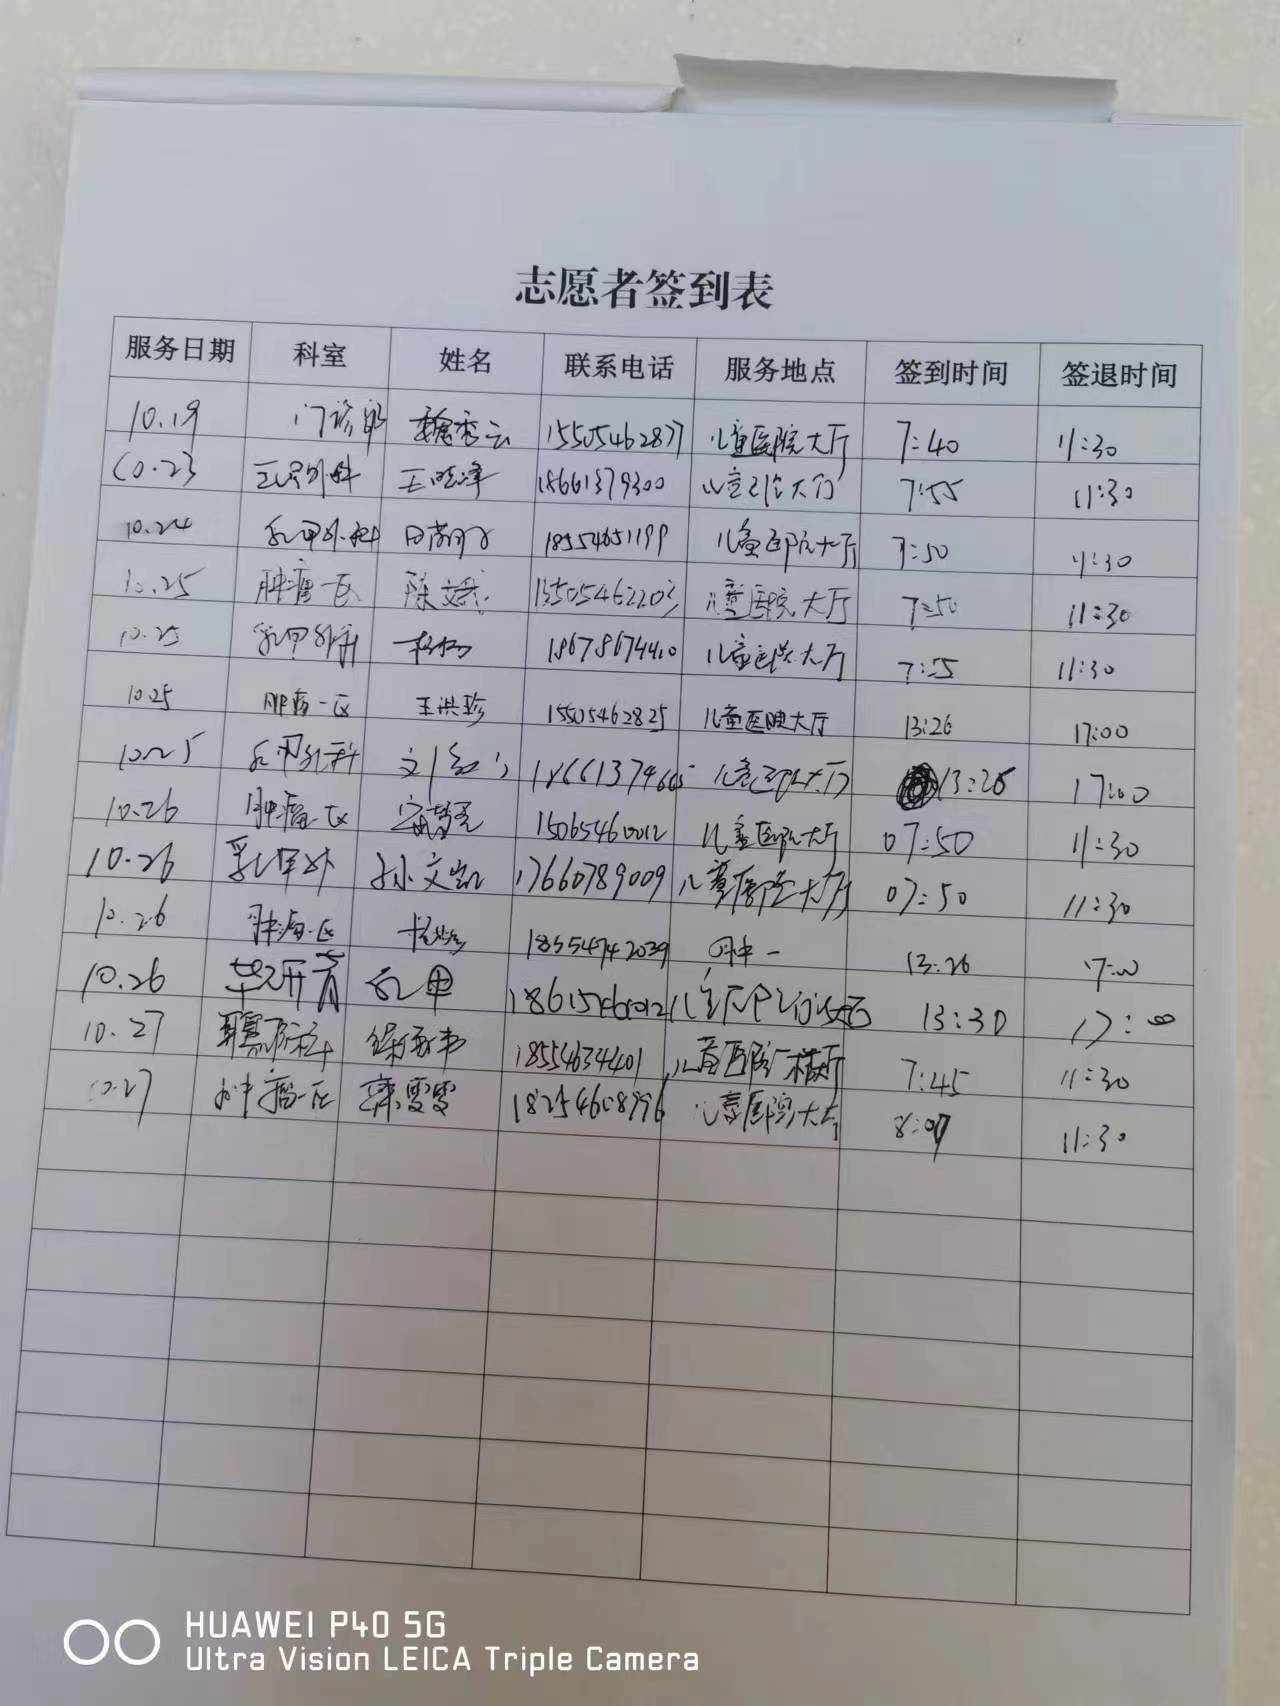 志愿者签到表
服务日期 科室 姓名 联系电话 服务地点 签到时间 签退时间
10.19 门诊部 秀云 15505462877 儿童医院大厅 7:40 11:30
10.23 王 18661379300 儿童 大厅 7:55 11:30
10.24 乳甲外科 田 18554651199 儿童医院大厅 7:50 11:30
10.25 肿瘤一区 陈文 13505462203 儿童医院大厅 7:50 11:30
10.25 乳甲外科 杨杨 18678674410 儿童医院大厅 7:55 11:30
10.25 肿瘤一区 王洪珍 15505462825 儿童医院大厅 13:26 17:00
10.25 乳甲外科 刘红 儿童医院大厅 13:26 17:00
10.26 肿瘤一区 15065460012 儿童医院大厅 07:50 11:30
10.26 乳甲外 孙文凯 17660789009 儿童医院大厅 07:50 11:30
10.26 肿瘤一区 18554742039 肿一 13:26 17:00
10.26 乳甲 儿童 13:30 17:00
10.27 18554634401 儿童医院 7:45 11:30
10.27 肿瘤一区 雯雯 18254608996 儿童医院大厅 8:07 11:30
HUAWEI P40 5G
Ultra Vision LEICA Triple Camera